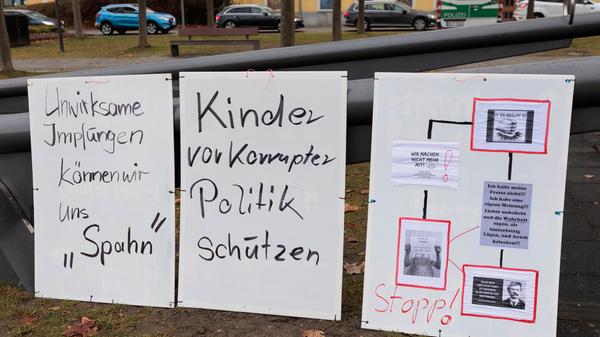 Unwirksame
Impfungen
können wir
uns
„Spahn"
Kinder
vor Korrupter
Politik
schützen
!!! ES REICHT !!!
WIR MACHEN
NICHT MEHR
MIT!
!
Ich halte meine
Fresse nicht!!!
Ich habe eine
eigene Meinung!!!
Lieber unbeliebt
und die Wahrheit
sagen, als
hinterfotzig
Lügen, und Arsch
Kriechen!!!
Stopp!
POLIZEI